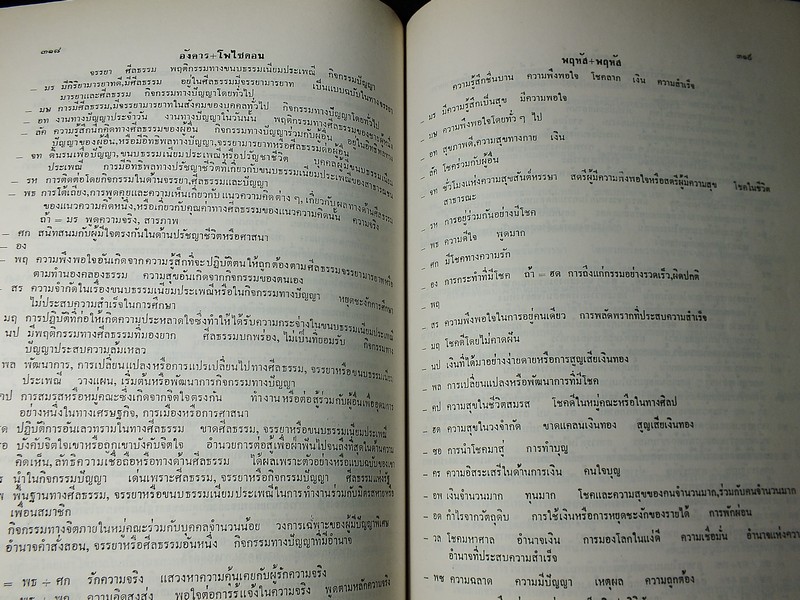 ๓๑๘
อังคาร+โพไซดอน
จรรยา ศีลธรรม พฤติกรรมทางขนบธรรมเนียมประเพณี กิจกรรมปัญญา
– มร มีกิริยามารยาทดี,มีศีลธรรม อยู่ในศีลธรรมมีจรรยามารยาท เป็นแบบฉบับในทางจรรยา
มารยาและศีลธรรม กิจกรรมทางปัญญาโดยทั่วไป
– มษ การมีศีลธรรม,มีจรรยามารยาทในสังคมของบุคคลทั่วไป กิจกรรมทางปัญญาโดยทั่วไป
– อท งานทางปัญญาประจำวัน งานทางปัญญาในวันนั้น พฤติกรรมทางศีลธรรมของชาวเมือง
– ลัค ความรู้สึกนึกคิดทางศีลธรรมของผู้อื่น กิจกรรมทางปัญญาร่วมกับผู้อื่น อยู่ในอิทธิพลทาง
ปัญญาของผู้อื่น,หรือมีอิทธิพลทางปัญญา,จรรยามารยาทหรือศีลธรรมต่อผู้อื่น
– จท ดิ้นรนเพื่อปัญญา,ขนบธรรมเนียมประเพณีหรือปรัชญาชีวิต บุคคลผู้มีขนบธรรมเนียม
ประเพณี การมีอิทธิพลทางปรัชญาชีวิตที่เกี่ยวกับขนบธรรมเนียมประเพณีของสาธารณชน
– รห การติดต่อโดยกิจกรรมในด้านจรรยา,ศีลธรรมและปัญญา
– พธ การโต้เถียง,การพูดคุยและความเห็นเกี่ยวกับแนวความคิดต่าง ๆ,เกี่ยวกับผลทางด้านศีลธรรม
ของแนวความคิดหนึ่ง,หรือเกี่ยวกับคุณค่าทางศีลธรรมของแนวความคิดนั้น ความจริง
ถ้า = มร พูดความจริง, สารภาพ
– ศก สนิทสนมกับผู้มีใจตรงกันในด้านปรัชญาชีวิตหรือศาสนา
– อง
– พฤ ความพึงพอใจอันเกิดจากความรู้สึกที่จะปฏิบัติตนให้ถูกต้องตามศีลธรรมจรรยามารยาทหรือ
ตามทำนองคลองธรรม ความสุขอันเกิดจากกิจกรรมของตนเอง
– สร ความจำกัดในเรื่องขนบธรรมเนียมประเพณีหรือในกิจกรรมทางปัญญา หยุดชะงักการศึกษา
ไม่ประสบความสำเร็จในการศึกษา
มฤ การปฏิบัติที่ก่อให้เกิดความประหลาดใจซึ่งทำให้ได้รับความกระจ่างในขนบธรรมเนียมประเพณี
นป มีพฤติกรรมทางศีลธรรมที่มองยาก ศีลธรรมบกพร่อง, ไม่เป็นที่ยอมรับ กิจกรรมทาง
ปัญญาประสบความล้มเหลว
พล พัฒนาการ, การเปลี่ยนแปลงหรือการแปรเปลี่ยนไปทางศีลธรรม, จรรยาหรือขนบธรรมเนียม
ประเพณี วางแผน, เริ่มต้นหรือพัฒนาการกิจกรรมทางปัญญา
คป การสมรสหรือหมู่คณะซึ่งเกิดจากจิตใจตรงกัน ทำงานหรือต่อสู้ร่วมกับผู้อื่นเพื่ออุดมการ
อย่างหนึ่งในทางเศรษฐกิจ, การเมืองหรือการศาสนา
ฮด ปฏิบัติการอันเลวทรามในทางศีลธรรม ขาดศีลธรรม, จรรยาหรือขนบธรรมเนียมประเพณี
บังคับจิตใจเขาหรือถูกเขาบังคับจิตใจ อำนวยการต่อสู้เพื่อฝ่าฟันไปจนถึงที่สุดในด้านความ
คิดเห็น,ลัทธิความเชื่อถือหรือทางด้านศีลธรรม ได้ผลเพราะตัวอย่างหรือแบบฉบับของเขา
นำในกิจกรรมปัญญา เด่นเพราะศีลธรรม, จรรยาหรือกิจกรรมปัญญา ศีลธรรมแห่งรัฐ
พื้นฐานทางศีลธรรม, จรรยาหรือขนบธรรมเนียมประเพณีในการทำงานร่วมกับมิตรสหายหรือ
เพื่อนสมาชิก
กิจกรรมทางจิตภายในหมู่คณะร่วมกับบุคคลจำนวนน้อย วงการเฉพาะของผู้มีปัญญาพิเศษ
อำนาจคำสั่งสอน, จรรยาหรือศีลธรรมอันหนึ่ง กิจกรรมทางปัญญาที่มีอำนาจ
= พธ ÷ ศก รักความจริง แสวงหาความคุ้นเคยกับผู้รักความจริง
ความคิดสูงส่ง พอใจต่อการรู้แจ้งในความจริง พูดตามหลักความจริง
พฤหัส+พฤหัส
๓๑๙
ความรู้สึกชื่นบาน ความพึงพอใจ โชคลาภ เงิน ความสำเร็จ
– มร มีความรู้สึกเป็นสุข มีความพอใจ
– มษ ความพึงพอใจโดยทั่ว ๆ ไป
– อท สุขภาพดี,ความสุขทางกาย เงิน
– ลัค โชคร่วมกับผู้อื่น
– จท ชั่วโมงแห่งความสุขสันต์หรรษา สตรีผู้มีความพึงพอใจหรือสตรีผู้มีความสุข โชคในชีวิต
สาธารณะ
– รห การอยู่ร่วมกันอย่างมีโชค
– พธ ความดีใจ พูดมาก
– ศก มีโชคทางความรัก
– อง การกระทำที่มีโชค ถ้า = ฮด การถึงแก่กรรมอย่างรวดเร็ว,ผิดปกติ
– พฤ
– สร ความพึงพอใจในการอยู่คนเดียว การพลัดพรากที่ประสบความสำเร็จ
– มฤ โชคดีโดยไม่คาดฝัน
– นป เงินที่ได้มาอย่างง่ายดายหรือการสูญเสียเงินทอง
– พล การเปลี่ยนแปลงหรือพัฒนาการที่มีโชค
– คป ความสุขในชีวิตสมรส โชคดีในหมู่คณะหรือในทางศิลป
– ฮด ความสุขในวงจำกัด ขาดแคลนเงินทอง สูญเสียเงินทอง
– ซอ การนำโชคมาสู่ การทำบุญ
– คร ความอิสระเสรีในด้านการเงิน คนใจบุญ
– อพ เงินจำนวนมาก ทุนมาก โชคและความสุขของคนจำนวนมาก,ร่วมกับคนจำนวนมาก
– อด กำไรจากวัตถุดิบ การใช้เงินหรือการหยุดชะงักของรายได้ การพักผ่อน
– วล โชคมหาศาล อำนาจเงิน การมองโลกในแง่ดี ความเชื่อมั่น อำนาจแห่งความ
อำนาจที่ประสบความสำเร็จ
– พซ ความฉลาด ความมีปัญญา เหตุผล ความถูกต้อง